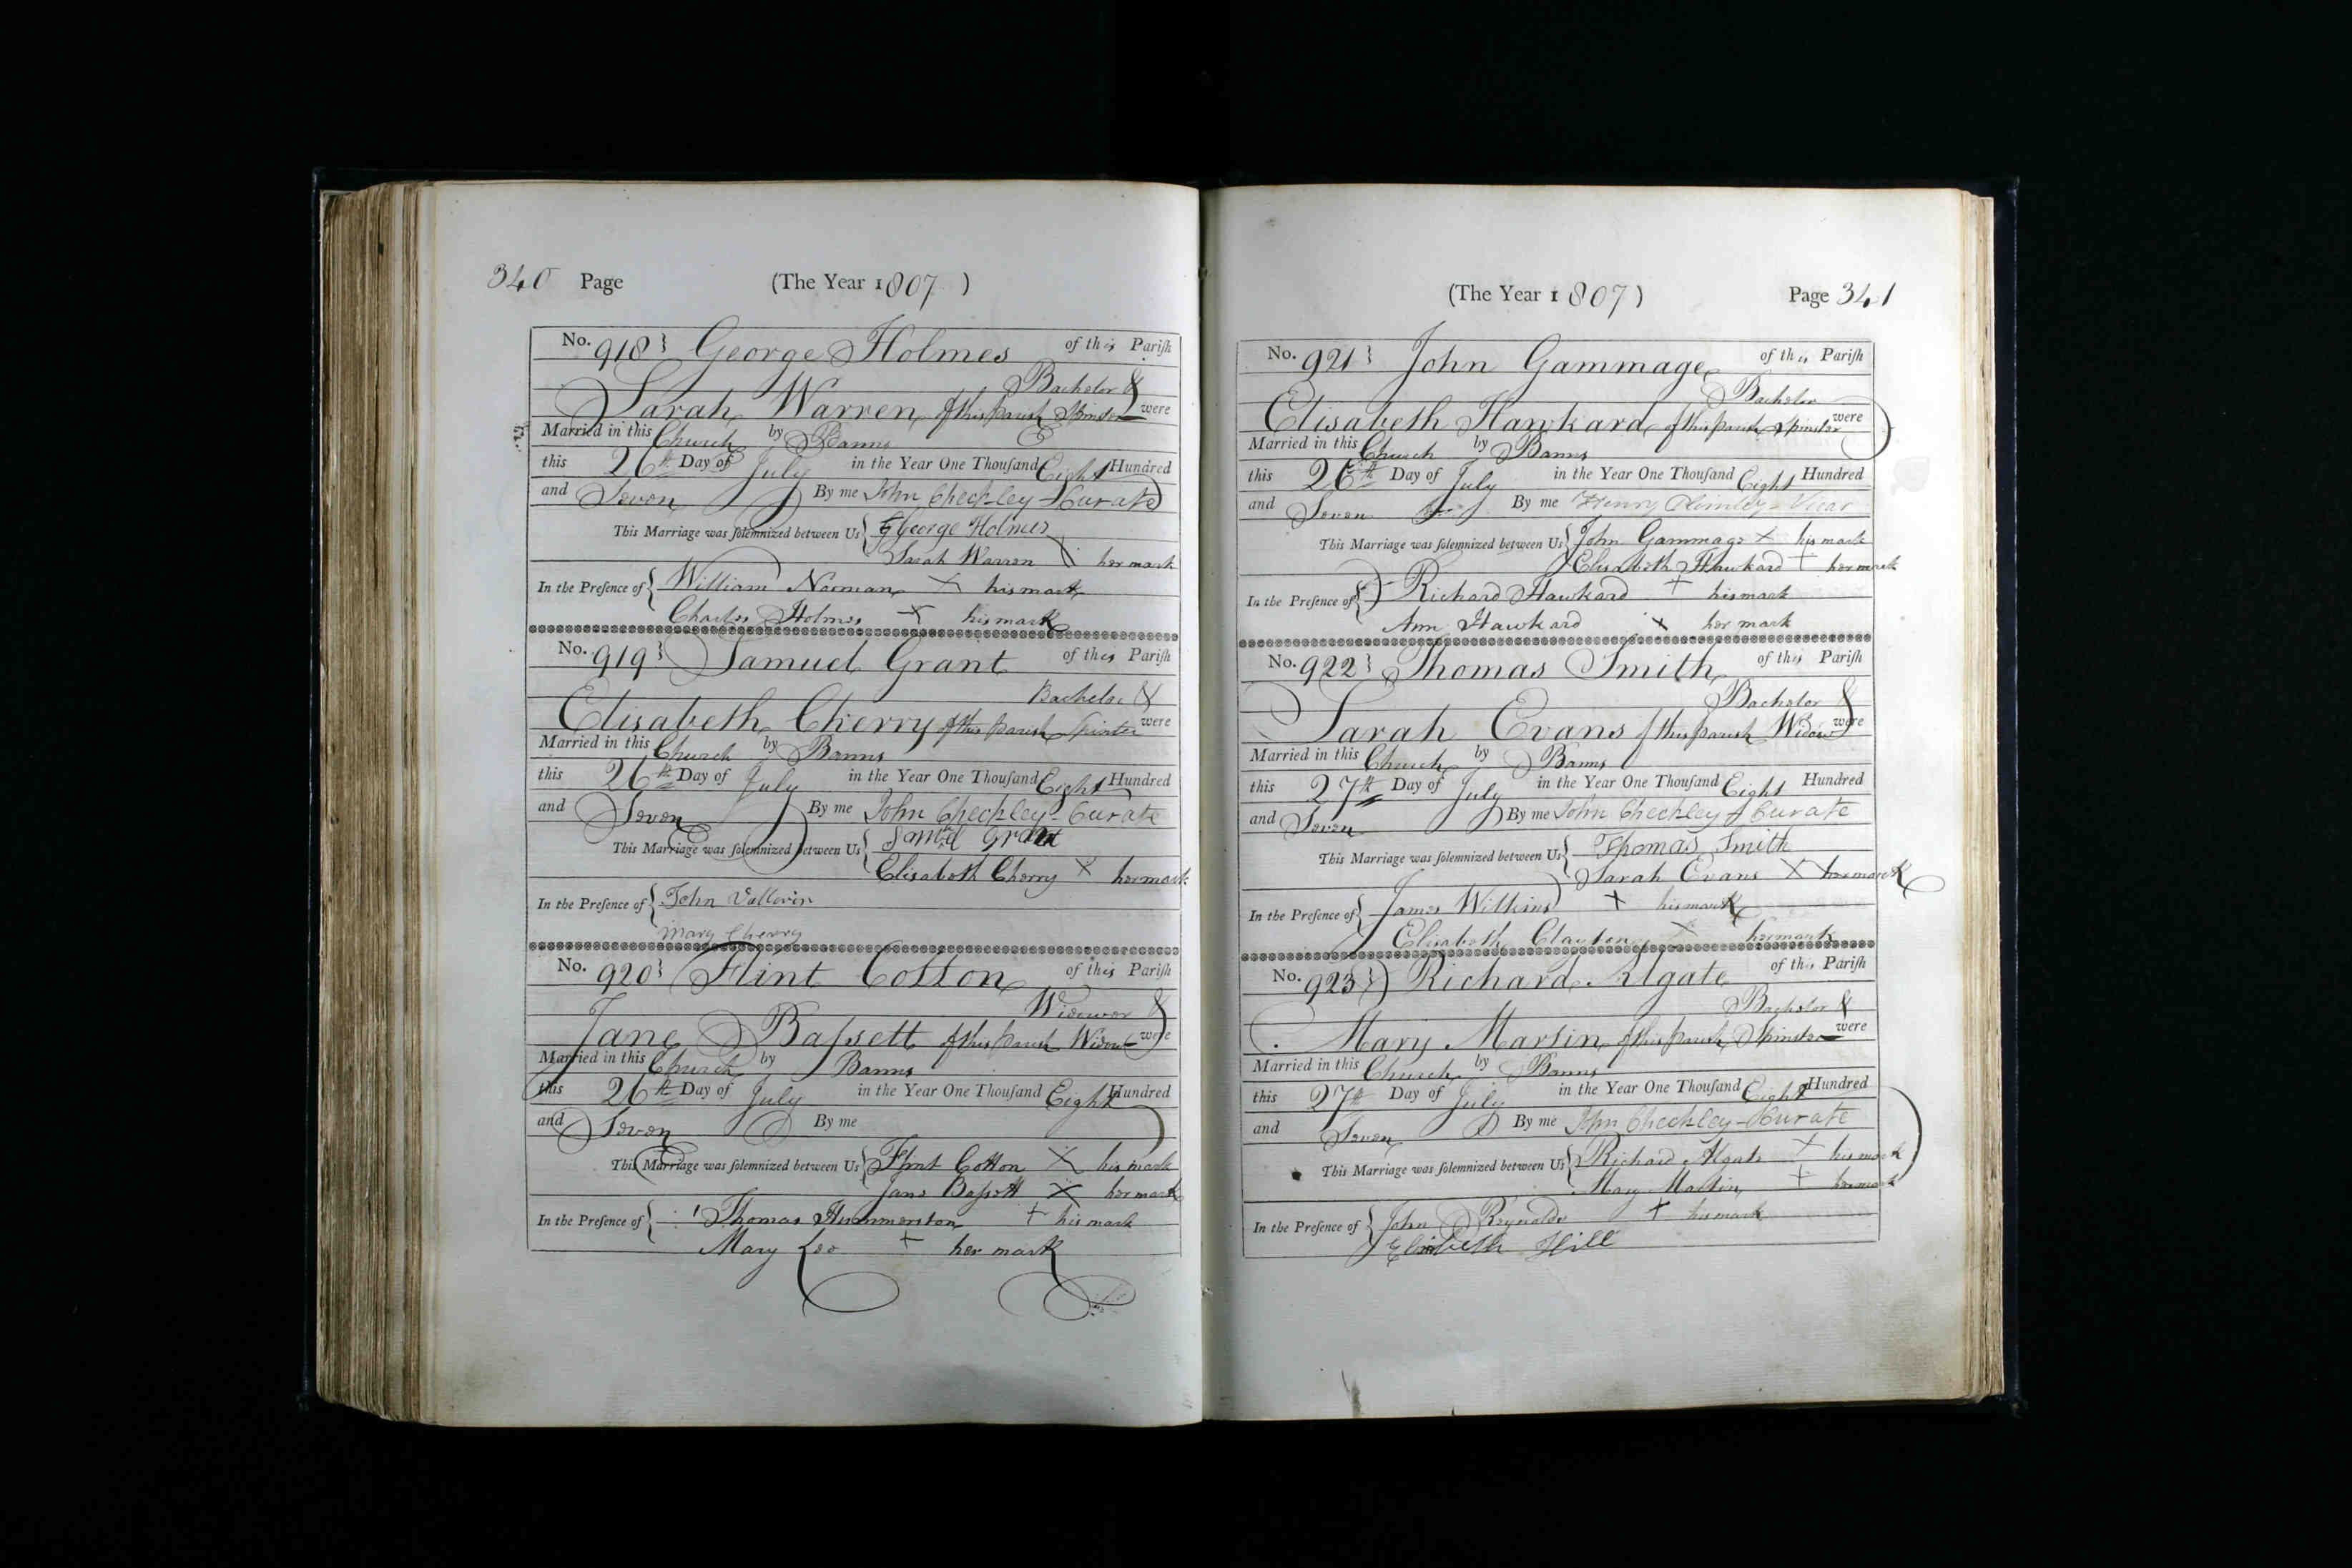 340 Page (The Year 1807)
No. 918 } George Holmes of this Parish
Bachelor &
Sarah Warren of this parish Spinster were
Married in this Church by Banns
this 26th Day of July in the Year One Thousand Eight Hundred
and Seven By me John Checkley Curate
This Marriage was solemnized between Us { George Holmes
Sarah Warren X her mark
In the Presence of { William Norman X his mark
Charles Holmes X his mark
No. 919 } Samuel Grant of this Parish
Bachelor &
Elisabeth Cherry of this parish Spinster were
Married in this Church by Banns
this 26th Day of July in the Year One Thousand Eight Hundred
and Seven By me John Checkley - Curate
This Marriage was solemnized between Us { Samuel Grant
Elisabeth Cherry X her mark
In the Presence of { John
Mary Cherry
No. 920 } Flint Cotton of this Parish
Widower &
Jane Bassett of this parish Widow were
Married in this Church by Banns
this 26th Day of July in the Year One Thousand Eight Hundred
and Seven By me
This Marriage was solemnized between Us { Flint Cotton X his mark
Jane Bassett X her mark
In the Presence of { Thomas Hummerston + his mark
Mary Lee + her mark
(The Year 1807) Page 341
No. 921 } John Gammage of this Parish
Bachelor
Elisabeth Hawkard of this parish Spinster were
Married in this Church by Banns
this 26th Day of July in the Year One Thousand Eight Hundred
and Seven By me Henry Vicar
This Marriage was solemnized between Us { John Gammage X his mark
Elisabeth Hawkard + her mark
In the Presence of { Richard Hawkard + his mark
Ann Hawkard X her mark
No. 922 } Thomas Smith of this Parish
Bachelor &
Sarah Evans of this parish Widow were
Married in this Church by Banns
this 27th Day of July in the Year One Thousand Eight Hundred
and Seven By me John Checkley Curate
This Marriage was solemnized between Us { Thomas Smith
Sarah Evans X her mark
In the Presence of { James Wilkins + his mark
Elisabeth Clayton X her mark
No. 923 } Richard Algate of this Parish
Bachelor &
Mary Martin of this parish Spinster were
Married in this Church by Banns
this 27th Day of July in the Year One Thousand Eight Hundred
and Seven By me John Checkley - Curate
This Marriage was solemnized between Us { Richard Algate X his mark
Mary Martin + her mark
In the Presence of { John Reynolds + his mark
Elizabeth Hill